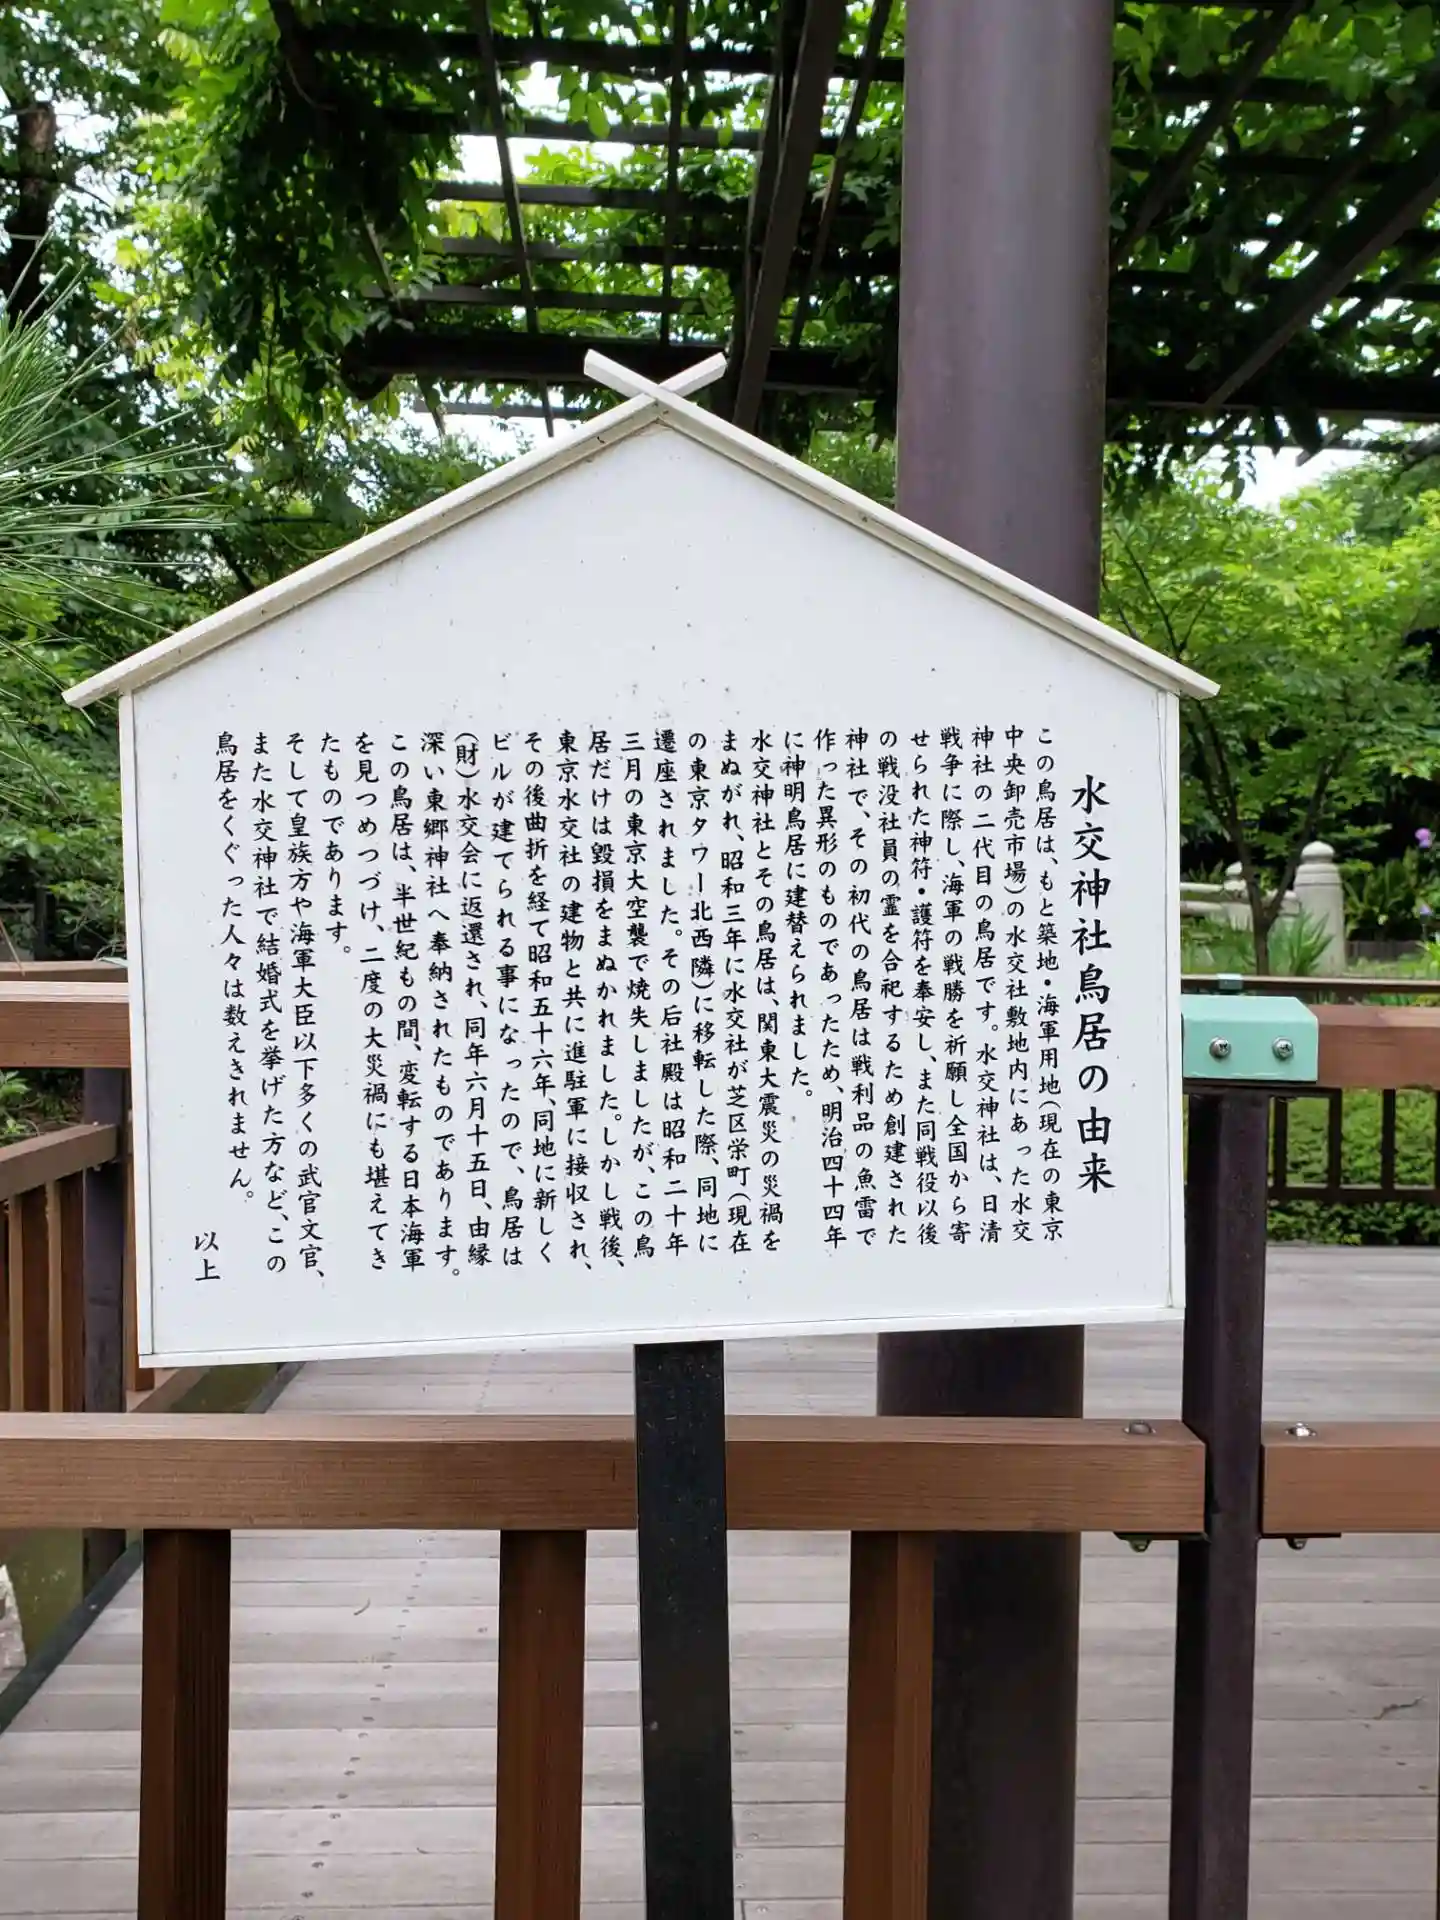 水交神社鳥居の由来
この鳥居は、もと築地・海軍用地(現在の東京
中央卸売市場)の水交社敷地内にあった水交
神社の二代目の鳥居です。水交神社は、日清
戦争に際し、海軍の戦勝を祈願し全国から寄
せられた神符・護符を奉安し、また同戦役以後
の戦没社員の霊を合祀するため創建された
神社で、その初代の鳥居は戦利品の魚雷で
作った異形のものであったため、明治四十四年
に神明鳥居に建替えられました。
水交神社とその鳥居は、関東大震災の災禍を
まぬがれ、昭和三年に水交社が芝区栄町(現在
の東京タワー北西隣)に移転した際、同地に
遷座されました。その后社殿は昭和二十年
三月の東京大空襲で焼失しましたが、この鳥
居だけは毀損をまぬかれました。しかし戦後、
東京水交社の建物と共に進駐軍に接収され、
その後曲折を経て昭和五十六年、同地に新しく
ビルが建てられる事になったので、鳥居は
(財)水交会に返還され、同年六月十五日、由縁
深い東郷神社へ奉納されたものであります。
この鳥居は、半世紀もの間、変転する日本海軍
を見つめつづけ、二度の大災禍にも堪えてき
たものであります。
そして皇族方や海軍大臣以下多くの武官文官、
また水交神社で結婚式を挙げた方など、この
鳥居をくぐった人々は数えきれません。
以上